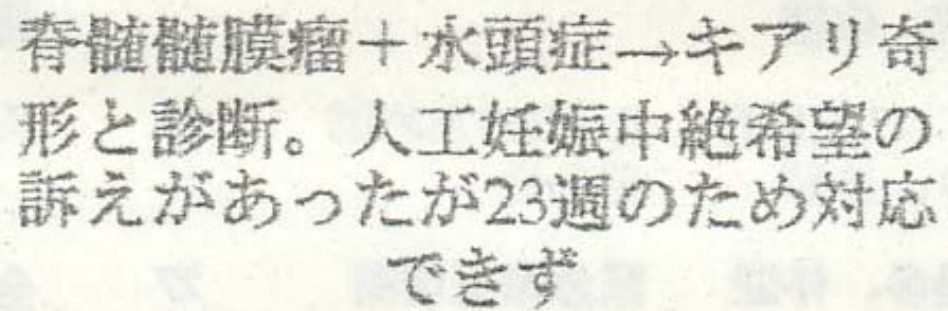 脊髄髄膜瘤＋水頭症→キアリ奇
形と診断。人工妊娠中絶希望の
訴えがあったが23週のため対応
できず